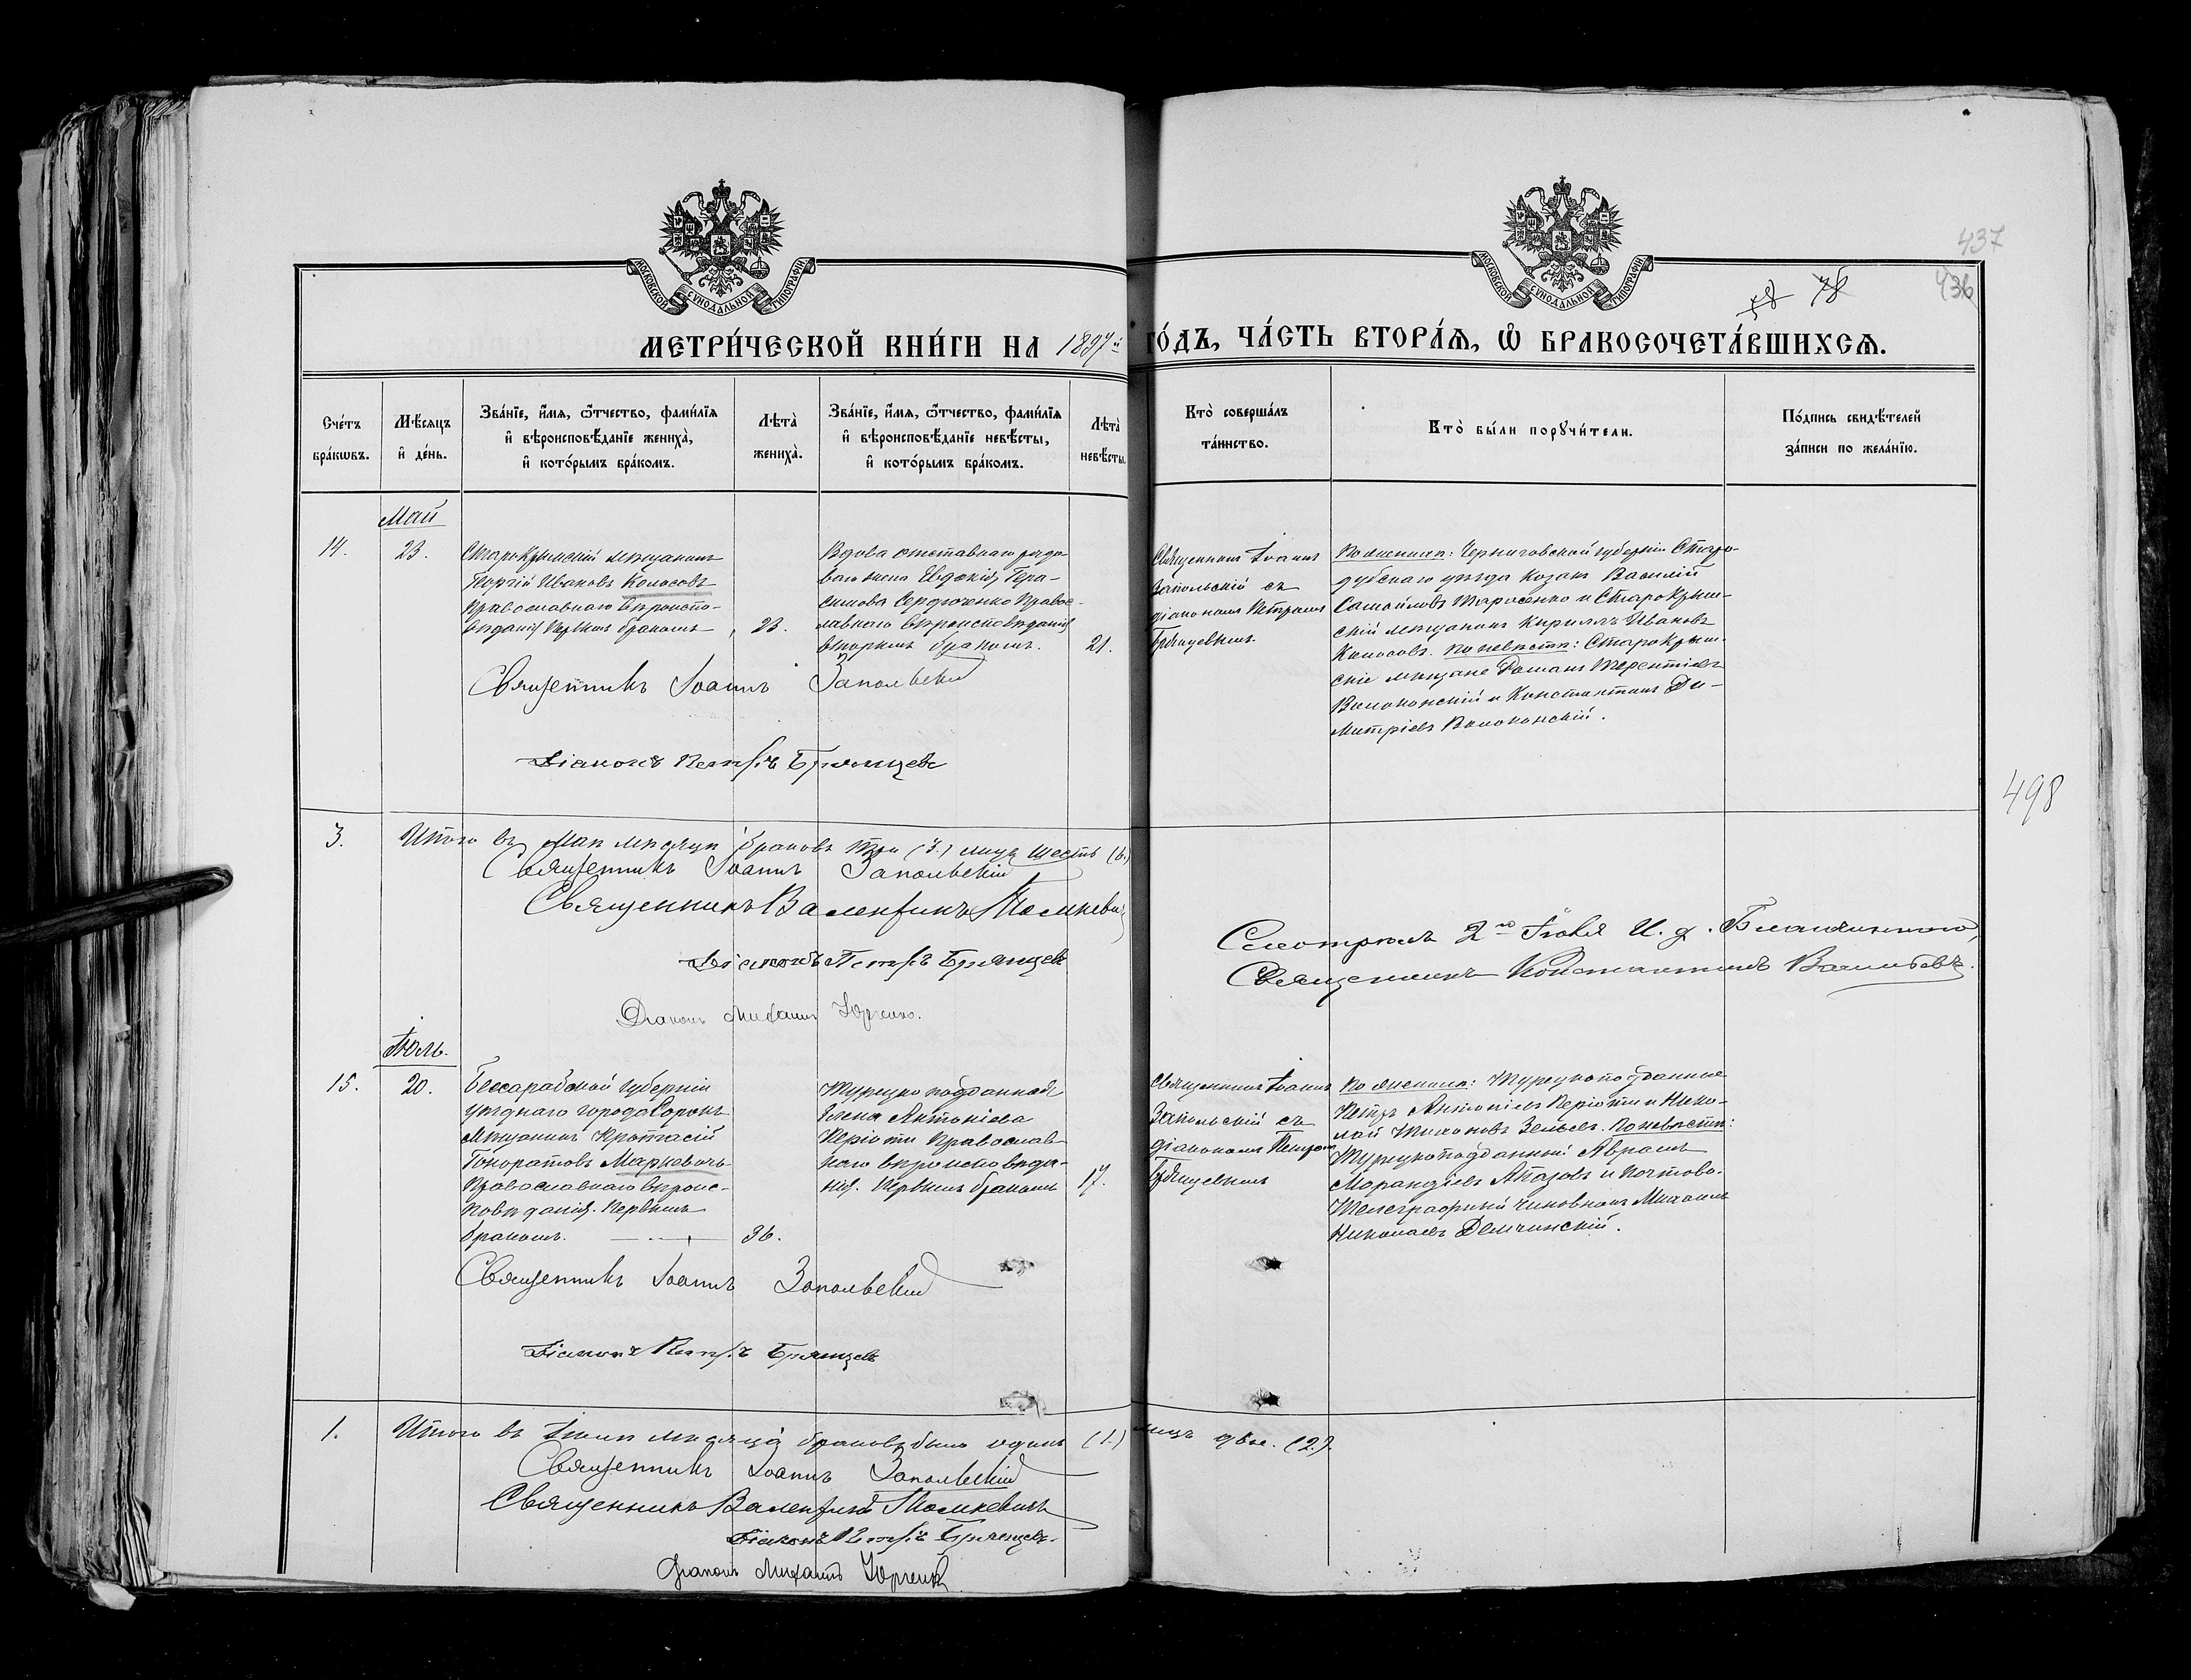 МОСКОВСКОЙ СѴНОДАЛЬНОЙ ТИПОГРАФІИ
МОСКОВСКОЙ СѴНОДАЛЬНОЙ ТИПОГРАФІИ
437
436
78 78
МЕТРИ́ЧЕСКОЙ КНИ́ГИ НА 1897й ГО́ДЪ, ЧА́СТЬ ВТОРА́Ѧ, Ѡ҆ БРАКОСОЧЕТА́ВШИХСѦ.
Сче́тъ бра́кѡвъ.
Мѣ́сѧцъ и҆ де́нь.
Зва́нїе, и҆́мѧ, ѻ҆́тчество, фами́лїѧ и҆ вѣроисповѣ́данїе жениха̀, и҆ кото́рымъ бра́комъ.
Лѣта̀ жениха̀.
Зва́нїе, и҆́мѧ, ѻ҆́тчество, фами́лїѧ и҆ вѣроисповѣ́данїе невѣ́сты, и҆ кото́рымъ бра́комъ.
Лѣта̀ невѣ́сты.
Кто̀ соверша́лъ та́инство.
Кто̀ бы́ли порꙋчи́тели.
По́дпись свидѣ́телей за́писи по жела́нїю.
Май
14.
23.
Старокрымскій мѣщанинъ
Георгій Ивановъ Колосовъ
Православнаго вѣроиспо-
вѣданія первымъ бракомъ
23.
Вдова отставнаго рядо-
ваго жена Евдокія Гера-
симова Сердюченко Правос-
лавнаго вѣроисповѣданія
вторымъ бракомъ.
21.
Священникъ Іоаннъ
Запольскій съ
діакономъ Петромъ
Брянцевымъ
По женихѣ: Черниговской губерніи Старо-
дубскаго уѣзда козакъ Василій
Самойловъ Тарасенко и Старокрым-
скій мѣщанинъ Кириллъ Ивановъ
Колосовъ. По невѣстѣ: Старокрым-
скіе мѣщане Романъ Терентіевъ
Волоконскій и Константинъ Ди-
митріевъ Волоконскій.
Священникъ Іоаннъ Запольскій
Діаконъ Петръ Брянцевъ
498
3.
Итого въ Маѣ мѣсяцѣ браковъ три (3.) лицъ шесть (6.)
Священникъ Іоаннъ Запольскій
Священникъ Валентинъ Томкевичъ
Діаконъ Петръ Брянцевъ
Діаконъ Михаилъ Юрченко.
Смотрѣлъ 2го Іюня И. д. Благочиннаго,
Священникъ Константинъ Васильевъ.
Іюль.
15.
20.
Бессарабской губерніи
уѣзднаго города Сорокъ
мѣщанинъ Протасій
Гоноратовъ Маркевичъ
Православнаго вѣроис-
повѣданія. Первымъ
бракомъ.
36.
Турецко подданная
Елена Антоніева
Періоти Православ-
наго вѣроисповѣда-
нія. Первымъ бракомъ
17.
Священникъ Іоаннъ
Запольскій съ
діакономъ Петромъ
Брянцевымъ
По женихѣ: Турецкоподданные
Петръ Антоніевъ Періоти и Нико-
лай Тихоновъ По невѣстѣ:
Турецкоподданный Аврамъ
и Почтово-
Телеграфный чиновникъ Михаилъ
Николаевъ Демчинскій.
Священникъ Іоаннъ Запольскій
Діаконъ Петръ Брянцевъ
1.
Итого въ Іюлѣ мѣсяцѣ браковъ было одинъ (1.) лицъ двое. (2.).
Священникъ Іоаннъ Запольскій
Священникъ Валентинъ Томкевичъ
Діаконъ Петръ Брянцевъ.
Діаконъ Михаилъ Юрченко